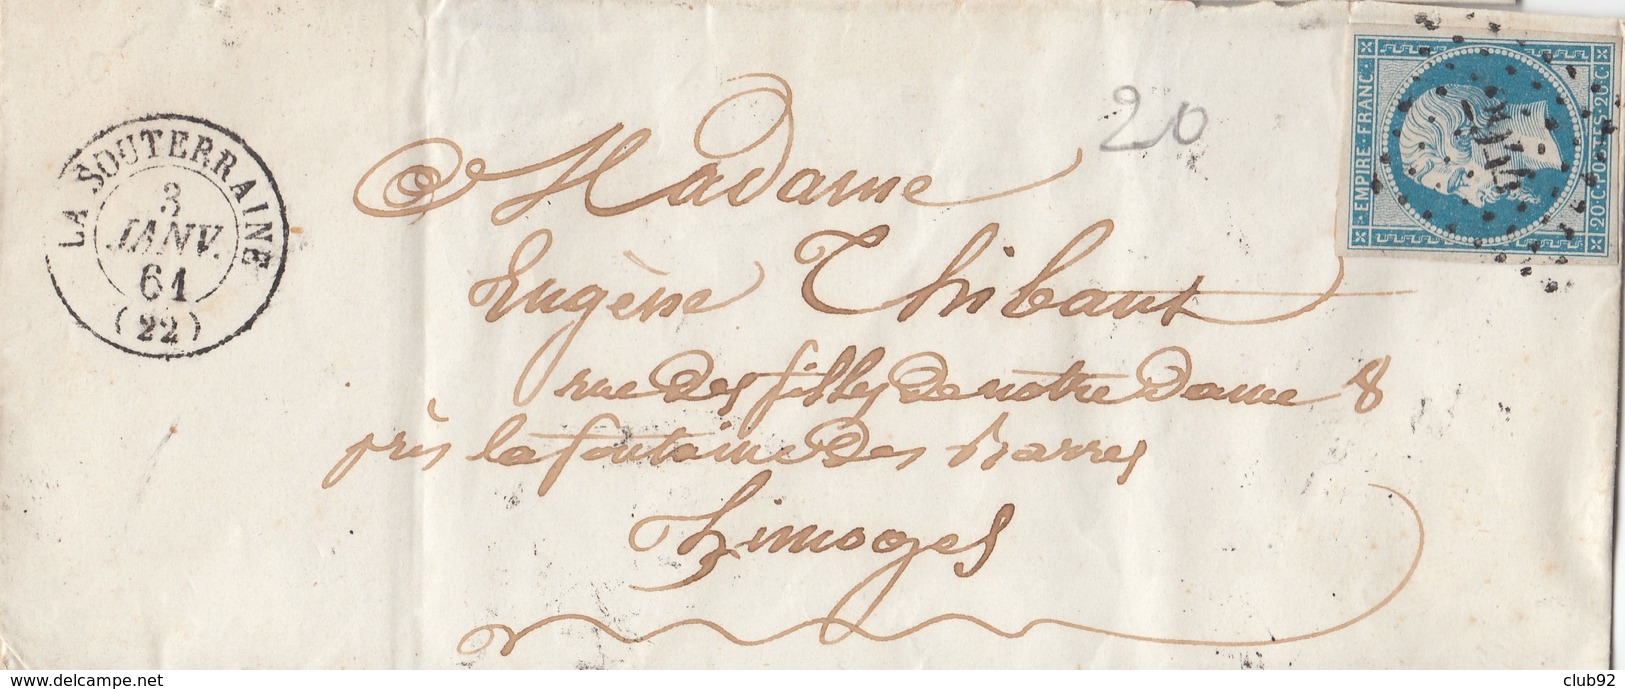 LA SOUTERRAINE
3
JANV.
61
(22)
20
EMPIRE · FRANC ·
20 C · POSTES · 20 C
Madame
Eugène Thibaut
rue des filles de notre Dame 8
près la fontaine des Barres
Limoges
www.delcampe.net
club92